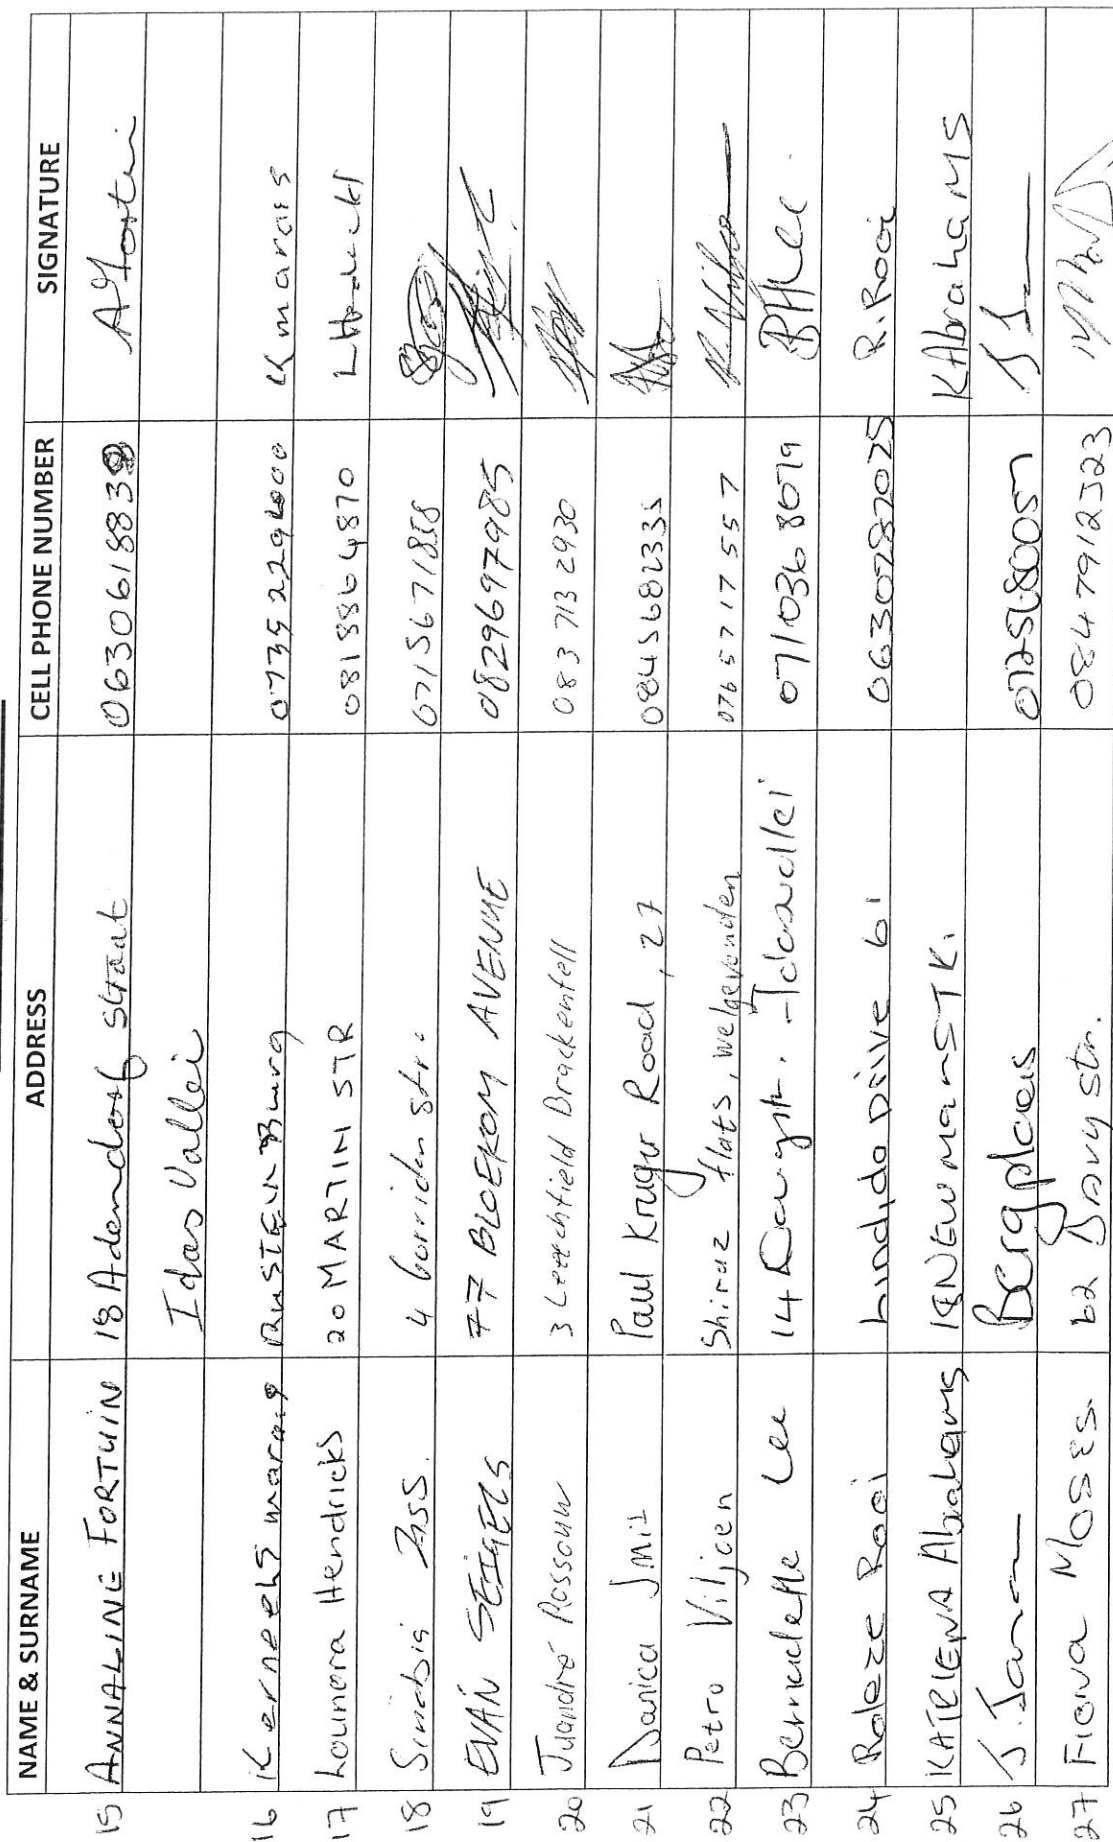 NAME & SURNAME ADDRESS CELL PHONE NUMBER SIGNATURE
15 ANNALINE FORTUIN 18 Adendorf straat 0630618838 A Fortuin
Idas Vallei
16 Kerneels marais Rustenburg 0735229600 K marais
17 Lounora Hendricks 20 MARTIN STR 0818864870 L Hendricks
18 4 Gorridon Str. 0715671858
19 EVAN SEIGELS 77 BLOEKOM AVENUE 0829697985
20 Juandré Rossouw 3 Leechfield Brackenfell 083 713 2930
21 Danica Smit Paul Kruger Road, 27 0845682335
22 Petro Viljoen Shiraz flats, welgevonden 0765717557 P Viljoen
23 Bernadette Lee 14 Idasvallei 0710368079 BHLee.
24 Roleze Rooi Lindida Drive 61 0630782025 R. Rooi
25 KATRIENA Abrahams 18 NEWmanSTK. KAbrahaMS
26 J. Jansen Bergplaas 0725680057 J J
27 Fiona Moses 62 Davy str. 0847912523